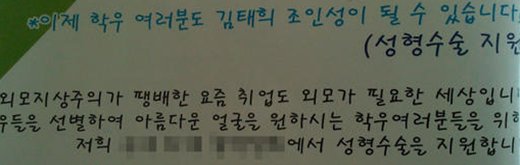 *이제 학우 여러분도 김태희 조인성이 될 수 있습니다
(성형수술 지원
외모지상주의가 팽배한 요즘 취업도 외모가 필요한 세상입니
들을 선별하여 아름다운 얼굴을 원하시는 학우여러분들을 위
저희 에서 성형수술을 지원합니